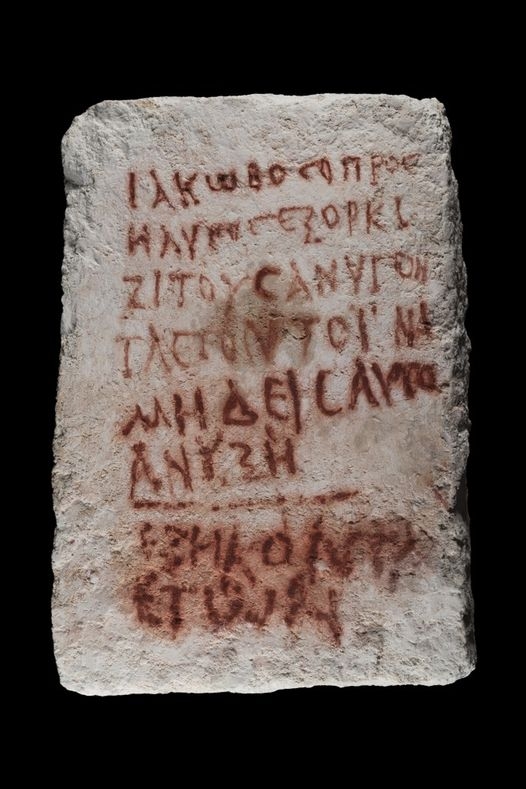 ΙΑΚωΒΟC Ο ΠΡΟC
ΗΛΥΤΟC ΕΞΟΡΚΙ
ΖΙ ΤΟΥC ΑΝΥΓΟΝ
ΤΑC ΤΟΥΤΟ ΙΝΑ
ΜΗΔΕΙC ΑΥΤΟ
ΑΝΥΞΗ
ΕΞΗΚΟΝΤΑ
ΕΤωΝ